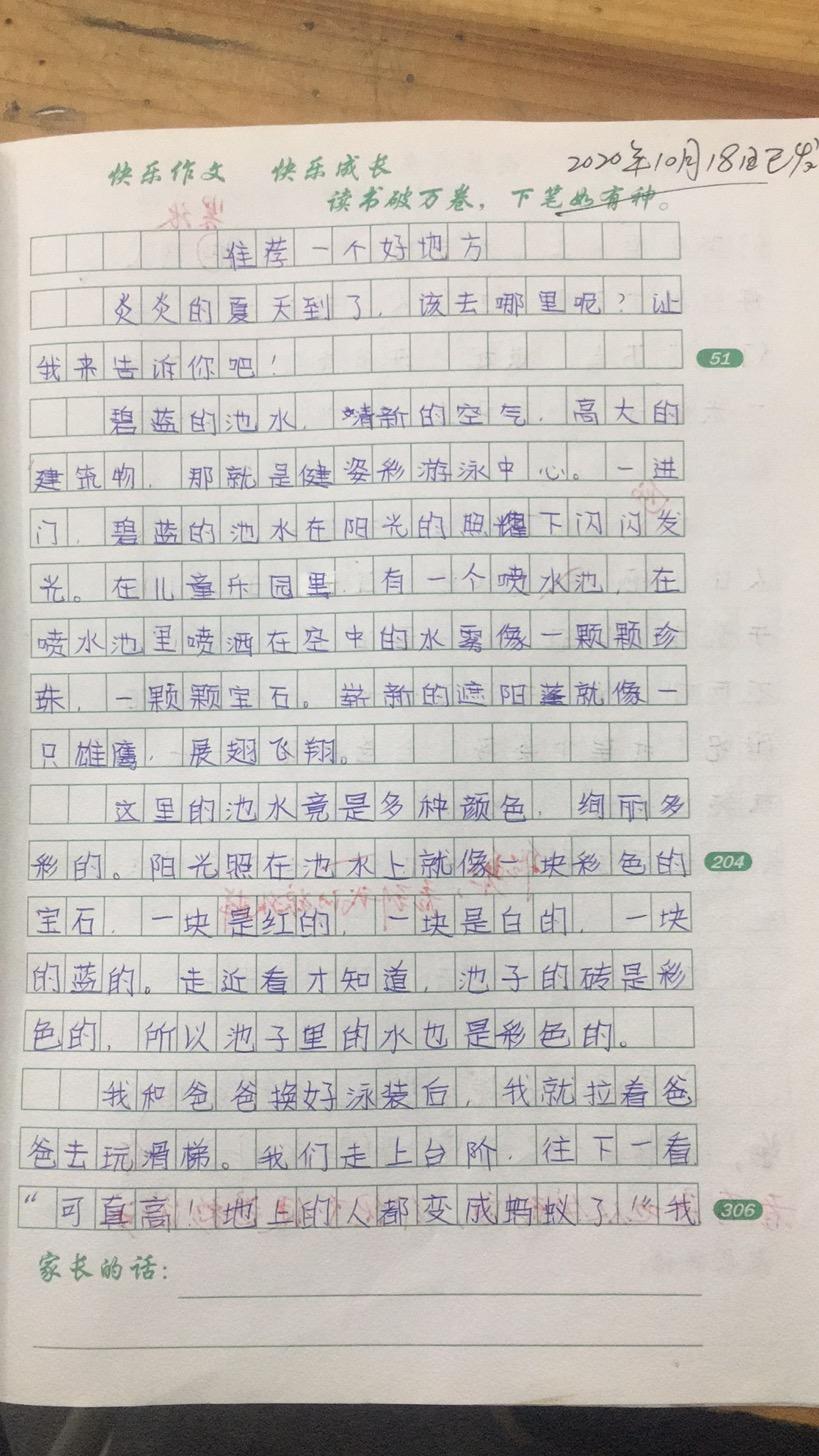 快乐作文 快乐成长
2020年10月18日已
读书破万卷，下笔如有种。
推荐一个好地方
炎炎的夏天到了，该去哪里呢？让
我来告诉你吧！
51
碧蓝的池水，清新的空气，高大的
建筑物，那就是健姿彩游泳中心。一进
门，碧蓝的池水在阳光的照耀下闪闪发
光。在儿童乐园里，有一个喷水池，在
喷水池里喷洒在空中的水雾像一颗颗珍
珠，一颗颗宝石。崭新的遮阳蓬就像一
只雄鹰，展翅飞翔。
这里的池水竟是多种颜色，绚丽多
彩的。阳光照在池水上就像一块彩色的
204
宝石，一块是红的，一块是白的，一块
的蓝的。走近看才知道，池子的砖是彩
色的，所以池子里的水也是彩色的。
我和爸爸换好泳装后，我就拉着爸
爸去玩滑梯。我们走上台阶，往下一看
“可真高！地上的人都变成蚂蚁了！”我
306
家长的话：